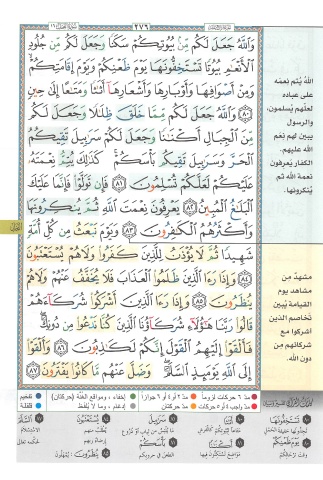 ٢٧٦
وَاللَّهُ جَعَلَ لَكُم مِّنۢ بُيُوتِكُمْ سَكَنًا وَجَعَلَ لَكُم مِّن جُلُودِ
الْأَنْعَٰمِ بُيُوتًا تَسْتَخِفُّونَهَا يَوْمَ ظَعْنِكُمْ وَيَوْمَ إِقَامَتِكُمْ
وَمِنْ أَصْوَافِهَا وَأَوْبَارِهَا وَأَشْعَارِهَا أَثَٰثًا وَمَتَٰعًا إِلَىٰ حِينٍ
٨٠ وَاللَّهُ جَعَلَ لَكُم مِّمَّا خَلَقَ ظِلَٰلًا وَجَعَلَ لَكُم
مِّنَ الْجِبَالِ أَكْنَٰنًا وَجَعَلَ لَكُمْ سَرَٰبِيلَ تَقِيكُمُ
الْحَرَّ وَسَرَٰبِيلَ تَقِيكُم بَأْسَكُمْ كَذَٰلِكَ يُتِمُّ نِعْمَتَهُ
عَلَيْكُمْ لَعَلَّكُمْ تُسْلِمُونَ ٨١ فَإِن تَوَلَّوْا فَإِنَّمَا عَلَيْكَ
الْبَلَٰغُ الْمُبِينُ ٨٢ يَعْرِفُونَ نِعْمَتَ اللَّهِ ثُمَّ يُنكِرُونَهَا
وَأَكْثَرُهُمُ الْكَٰفِرُونَ ٨٣ وَيَوْمَ نَبْعَثُ مِن كُلِّ أُمَّةٍ
شَهِيدًا ثُمَّ لَا يُؤْذَنُ لِلَّذِينَ كَفَرُوا وَلَا هُمْ يُسْتَعْتَبُونَ
٨٤ وَإِذَا رَءَا الَّذِينَ ظَلَمُوا الْعَذَابَ فَلَا يُخَفَّفُ عَنْهُمْ وَلَا هُمْ
يُنظَرُونَ ٨٥ وَإِذَا رَءَا الَّذِينَ أَشْرَكُوا شُرَكَاءَهُمْ
قَالُوا رَبَّنَا هَٰؤُلَاءِ شُرَكَاؤُنَا الَّذِينَ كُنَّا نَدْعُوا مِن دُونِكَ
فَأَلْقَوْا إِلَيْهِمُ الْقَوْلَ إِنَّكُمْ لَكَٰذِبُونَ ٨٦ وَأَلْقَوْا
إِلَى اللَّهِ يَوْمَئِذٍ السَّلَمَ وَضَلَّ عَنْهُم مَّا كَانُوا يَفْتَرُونَ ٨٧
الله يُتم نعمَه
على عباده
لعلّهم يُسلمون،
والرسول
يبين لهم نِعَم
الله عليهم.
الكفار يَعرفون
نعمة الله ثم
يُنكرونها.
مشهدٌ من
مشاهد يوم
القيامة يُبين
تَخاصم الذين
أشركوا مع
شركائهم من
دون الله.
مدّ ٦ حركات لزوماً مدّ ٢ أو ٤ أو ٦ جوازاً إخفاء، ومواقع الغُنَّة (حركتان) تفخيم
مدّ واجب ٤ أو ٥ حركات مدّ حركتان إدغام، وما لا يُلفَظ قلقلة